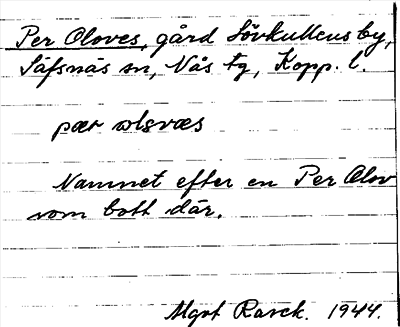 Per Oloves, gård Lövkullens by,
Säfsnäs sn, Nås tg, Kopp. l.
pær ɷlɷvæs
Namnet efter en Per Olov
som bott där.
Mgrt Ranck. 1944.